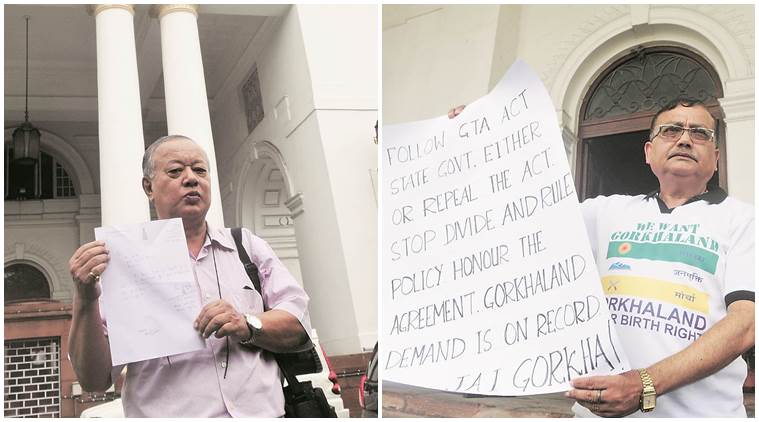 FOLLOW GTA ACT
STATE GOVT. EITHER
OR REPEAL THE ACT.
STOP DIVIDE AND RULE
POLICY HONOUR THE
AGREEMENT. GORKHALAND
DEMAND IS ON RECORD
JAI GORKHA!
WE WANT
GORKHALAND
जनमुक्ति
मोर्चा
GORKHALAND
BIRTH RIGHT